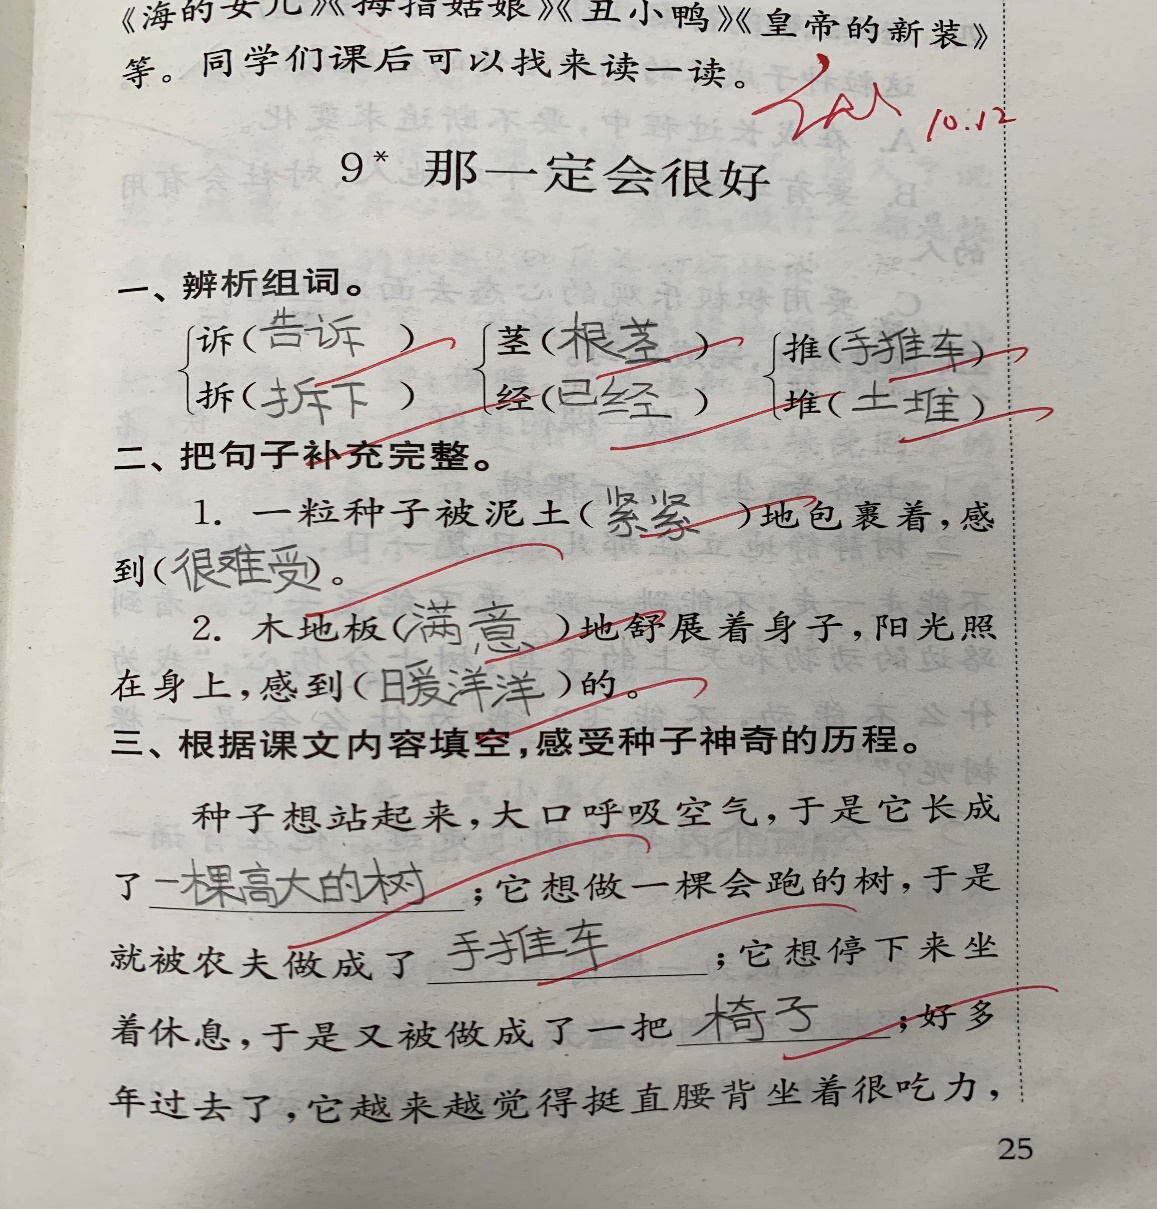 《海的女儿》《拇指姑娘》《丑小鸭》《皇帝的新装》
等。同学们课后可以找来读一读。
10.12
9* 那一定会很好
一、辨析组词。
诉(告诉) 茎(根茎) 推(手推车)
拆(拆下) 经(已经) 堆(土堆)
二、把句子补充完整。
1. 一粒种子被泥土(紧紧)地包裹着,感
到(很难受)。
2. 木地板(满意)地舒展着身子,阳光照
在身上,感到(暖洋洋)的。
三、根据课文内容填空,感受种子神奇的历程。
种子想站起来,大口呼吸空气,于是它长成
了一棵高大的树;它想做一棵会跑的树,于是
就被农夫做成了手推车;它想停下来坐
着休息,于是又被做成了一把椅子;好多
年过去了,它越来越觉得挺直腰背坐着很吃力,
25